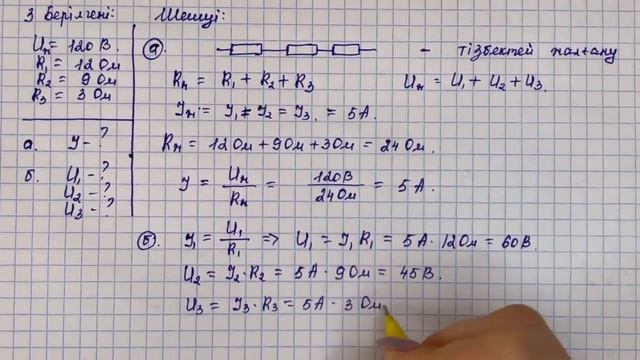 3 Берілгені:
Uж = 120 В.
R₁ = 12 Ом
R₂ = 9 Ом
R₃ = 3 Ом
а. I - ?
б. U₁ - ?
U₂ - ?
U₃ - ?
Шешуі:
а). - тізбектей жалғану
Rж = R₁ + R₂ + R₃ Uж = U₁ + U₂ + U₃.
Iж = I₁ = I₂ = I₃ = 5А.
Rж = 12 Ом + 9 Ом + 3 Ом = 24 Ом.
I = Uж/Rж = 120 В/24 Ом = 5 А.
б). I₁ = U₁/R₁ => U₁ = I₁ R₁ = 5А · 12 Ом = 60 В.
U₂ = I₂ · R₂ = 5А · 9 Ом = 45 В.
U₃ = I₃ · R₃ = 5А · 3 Ом